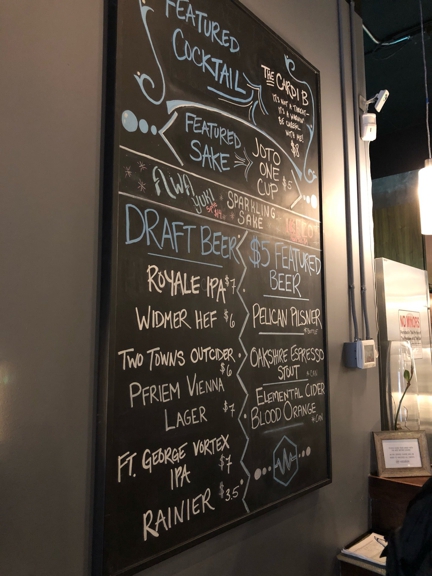 FEATURED
COCKTAIL
THE CARDI B
IT'S NOT A THREAT-
IT'S A WARNING
BE CAREFUL
WITH ME!
$8
FEATURED
SAKE
JOTO
ONE
CUP $5
AWA
YUKI
SPARKLING
SAKE
DRAFT BEER
ROYALE IPA $7
WIDMER HEF $6
TWO TOWNS OUTCIDER
$6
PFRIEM VIENNA
LAGER $7
FT. GEORGE VORTEX
IPA $7
RAINIER $3.5
$5 FEATURED
BEER
PELICAN PILSNER
OAKSHIRE ESPRESSO
STOUT
ELEMENTAL CIDER
BLOOD ORANGE
NO MINORS